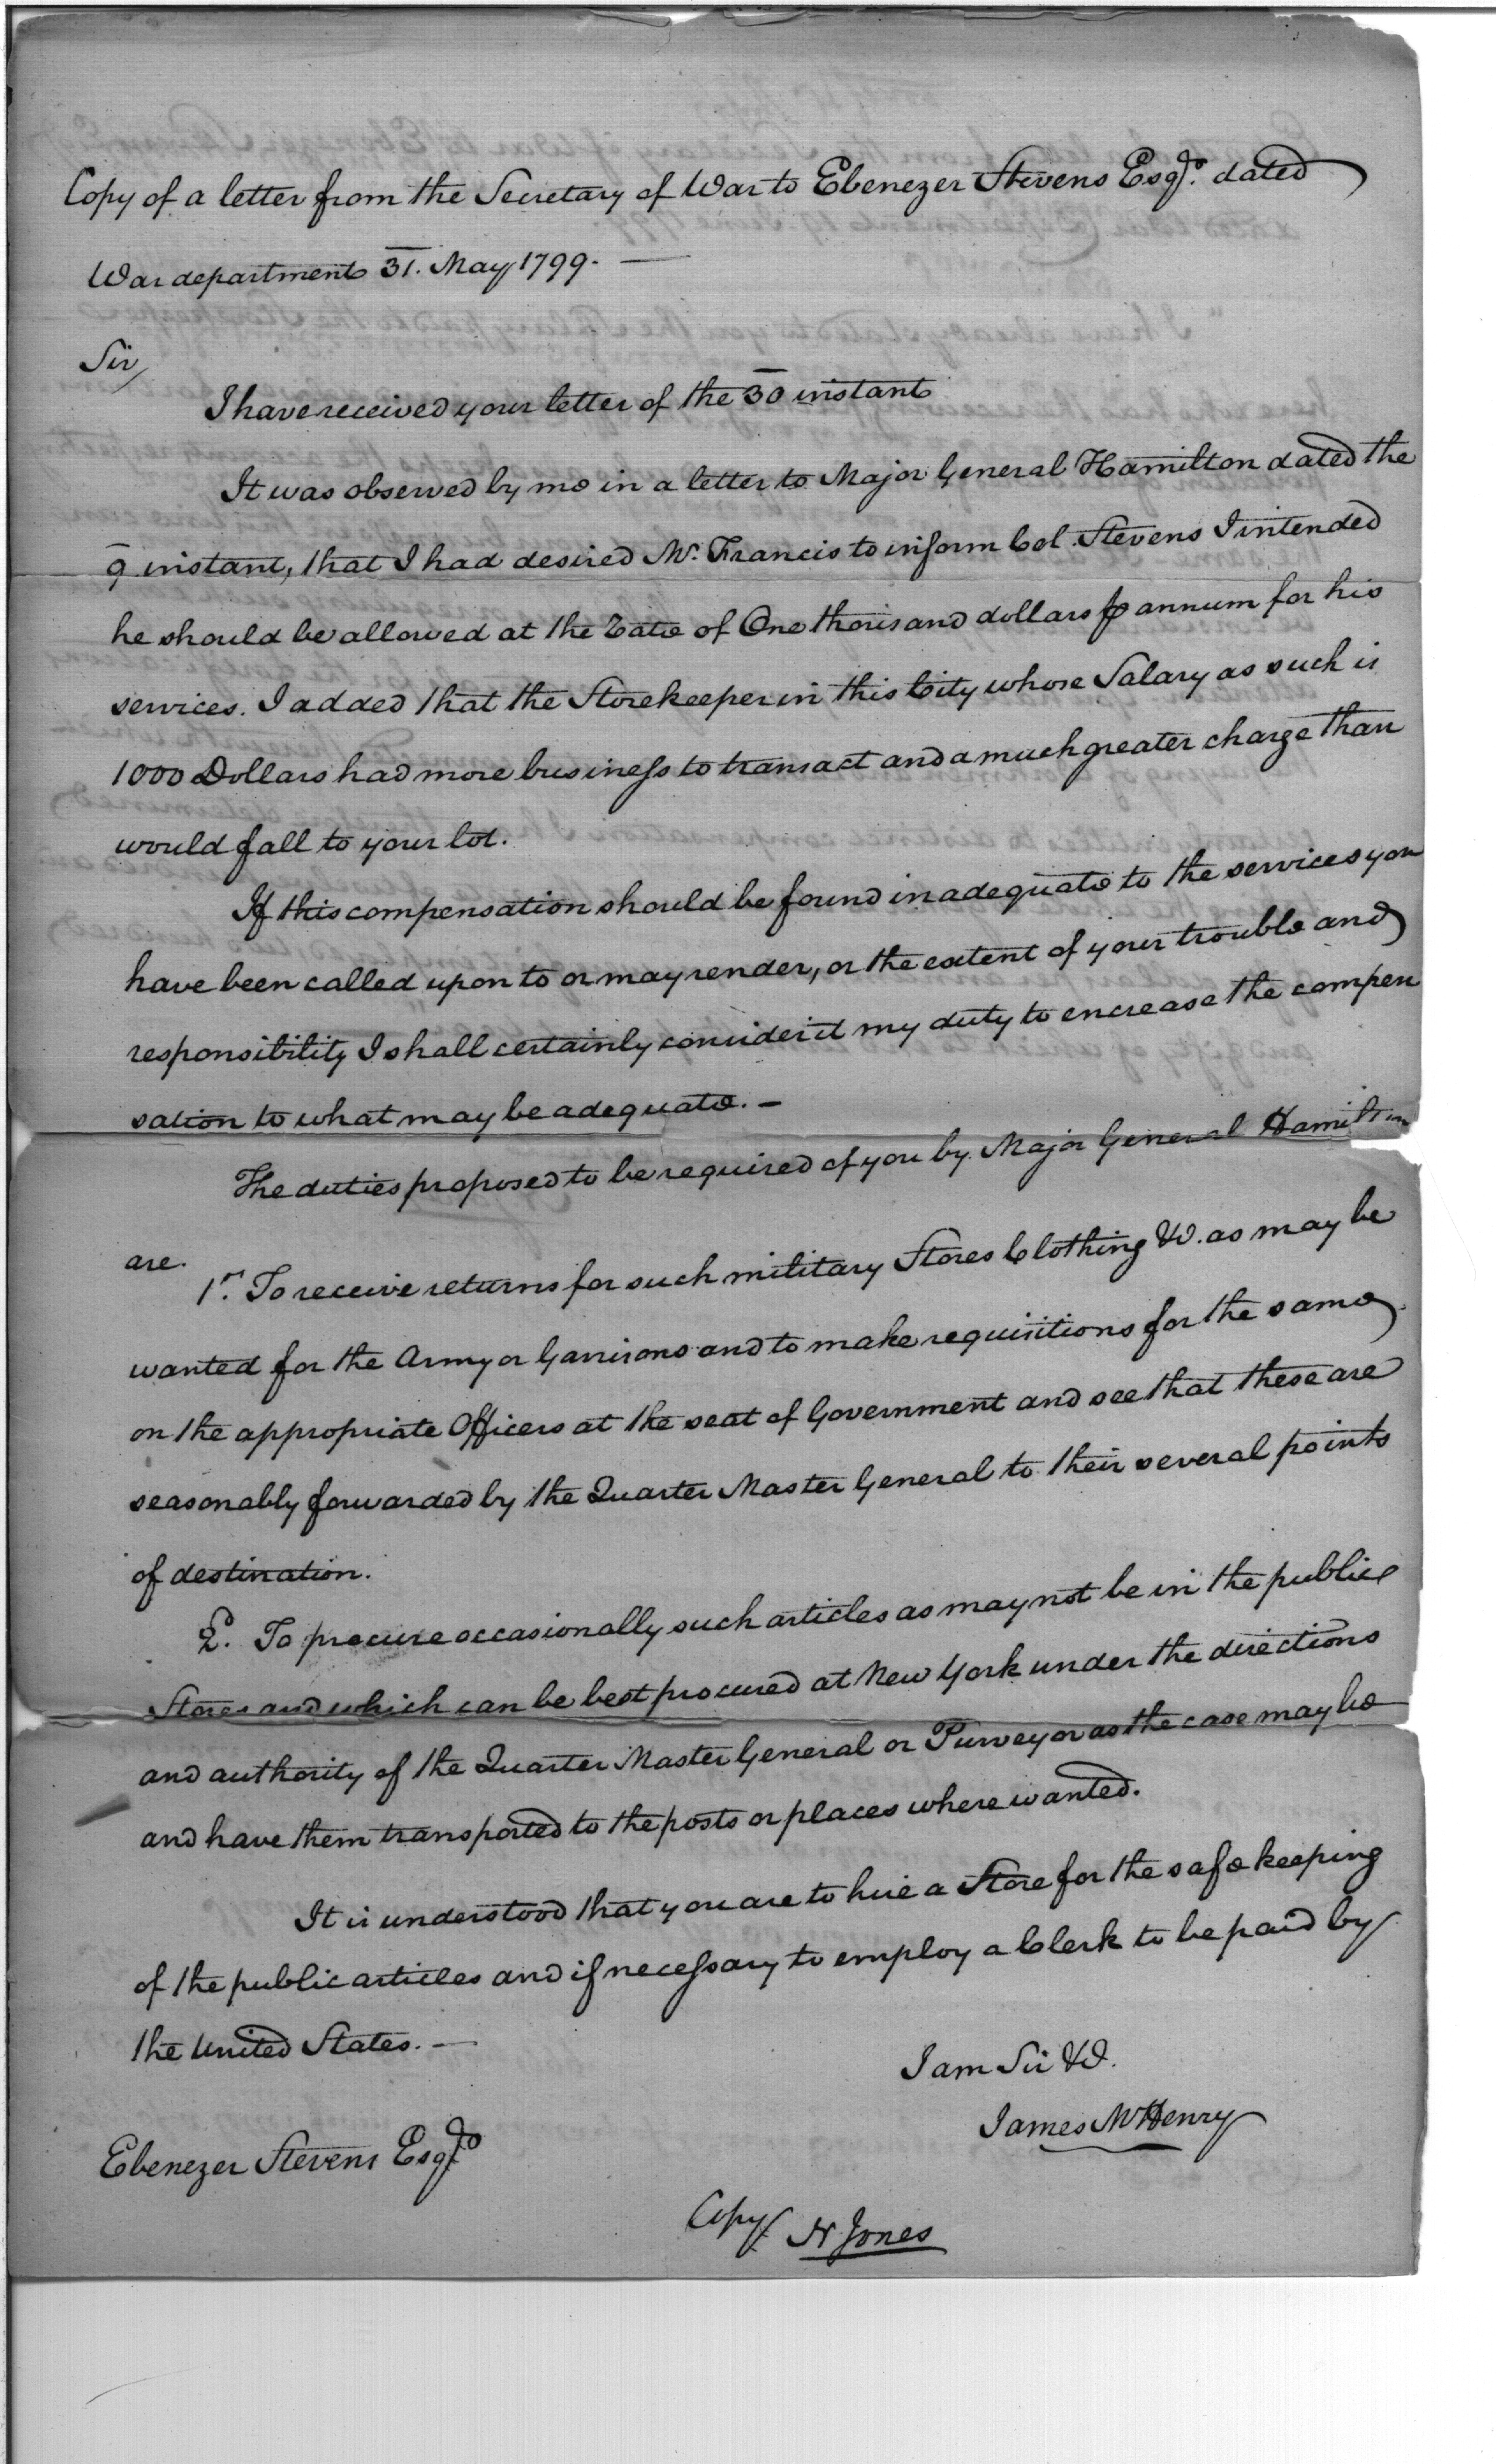 Copy of a letter from the Secretary of War to Ebenezer Stevens Esqr. dated
War department 31. May 1799. —
Sir,
I have received your letter of the 30 instant
It was observed by me in a letter to Major General Hamilton dated the
9 instant, that I had desired Mr. Francis to inform Col. Stevens I intended
he should be allowed at the rate of One thousand dollars ⅌ annum for his
services. I added that the Storekeeper in this City whose Salary as such is
1000 Dollars had more business to transact and a much greater charge than
would fall to your lot.
If this compensation should be found inadequate to the services you
have been called upon to or may render, or the extent of your trouble and
responsibility I shall certainly consider it my duty to encrease the compen
sation to what may be adequate. —
The duties proposed to be required of you by Major General Hamilton
are.
1st. To receive returns for such military Stores Clothing &c. as may be
wanted for the Army or Garrisons and to make requisitions for the same
on the appropriate Officers at the seat of Government and see that these are
seasonably forwarded by the Quarter Master General to their several points
of destination.
2d. To procure occasionally such articles as may not be in the public
Stores and which can be best procured at New York under the directions
and authority of the Quarter Master General or Purveyor as the case may be
and have them transported to the posts or places where wanted.
It is understood that you are to hire a Store for the safe keeping
of the public articles and if necessary to employ a Clerk to be paid by
the United States. —
I am Sir &c.
James McHenry
Ebenezer Stevens Esqr.
Copy N Jones